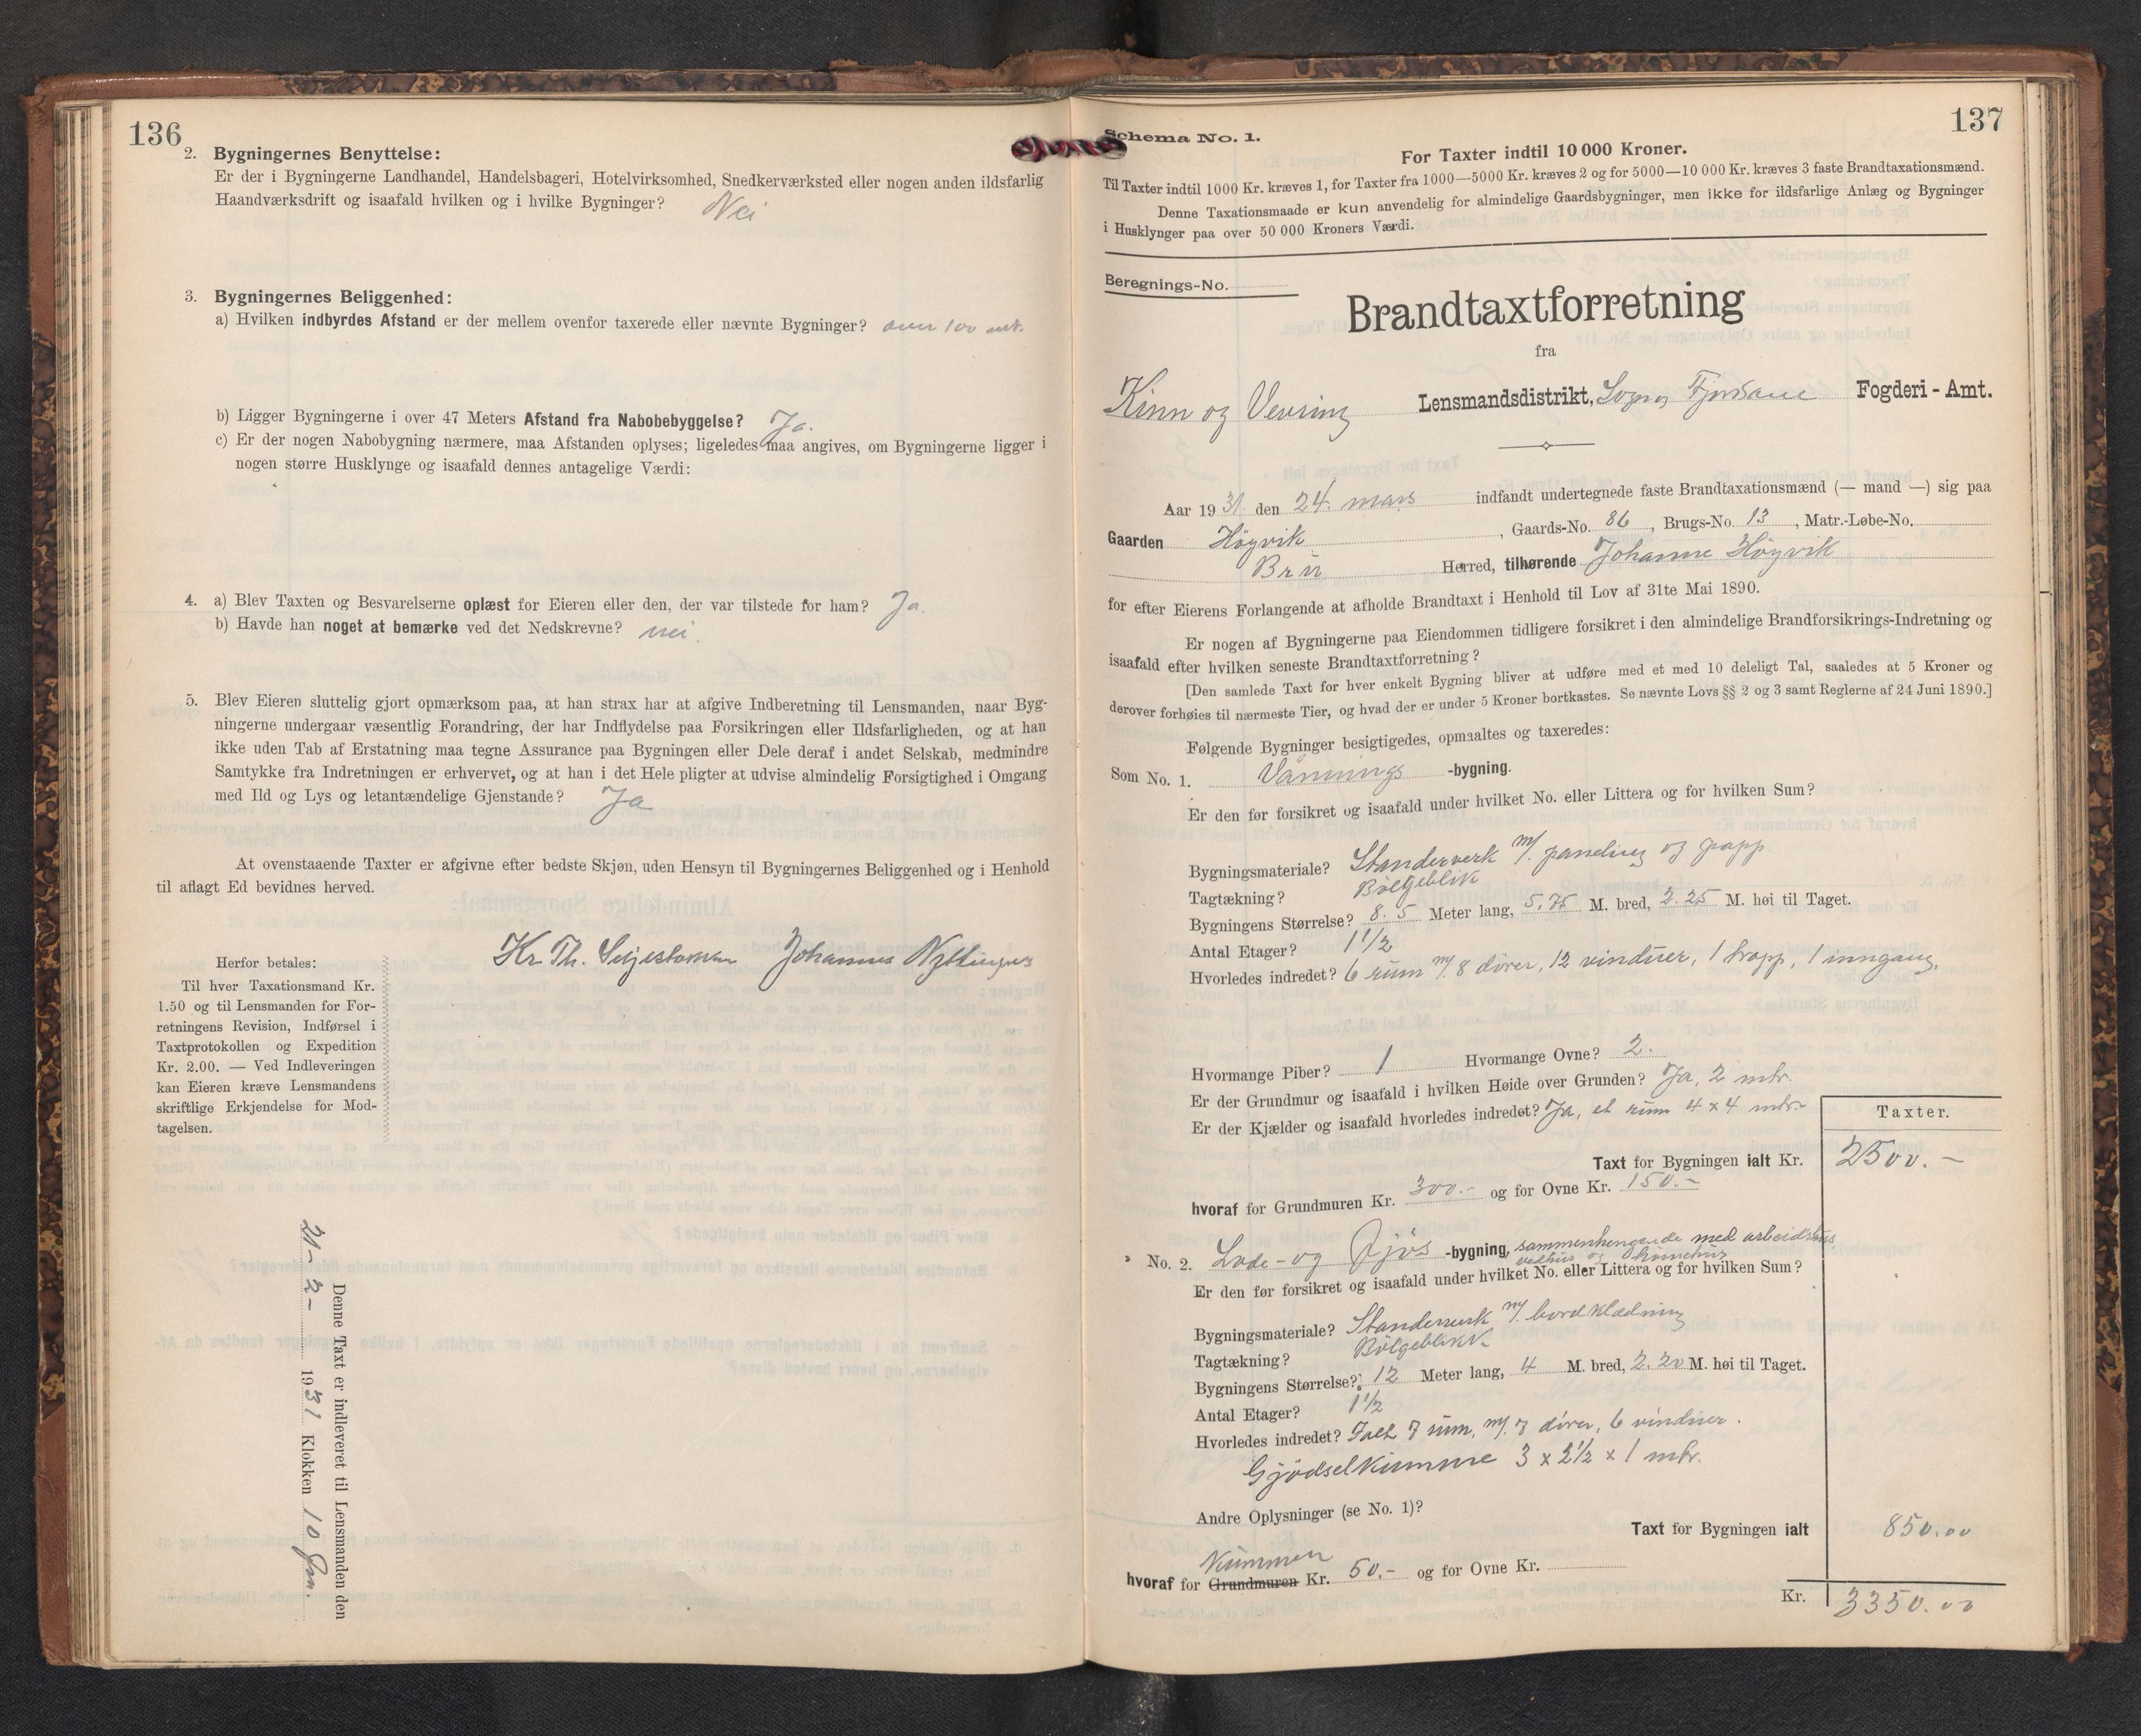 136
2. Bygningernes Benyttelse:
Er der i Bygningerne Landhandel, Handelsbageri, Hotelvirksomhed, Snedkerværksted eller nogen anden ildsfarlig
Haandværksdrift og isaafald hvilken og i hvilke Bygninger? Nei
3. Bygningernes Beliggenhed:
a) Hvilken indbyrdes Afstand er der mellem ovenfor taxerede eller nævnte Bygninger? over 100 mt.
b) Ligger Bygningerne i over 47 Meters Afstand fra Nabobebyggelse? Ja.
c) Er der nogen Nabobygning nærmere, maa Afstanden oplyses; ligeledes maa angives, om Bygningerne ligger i
nogen større Husklynge og isaafald dennes antagelige Værdi:
4. a) Blev Taxten og Besvarelserne oplæst for Eieren eller den, der var tilstede for ham? Ja.
b) Havde han noget at bemærke ved det Nedskrevne? nei.
5. Blev Eieren sluttelig gjort opmærksom paa, at han strax har at afgive Indberetning til Lensmanden, naar Byg-
ningerne undergaar væsentlig Forandring, der har Indflydelse paa Forsikringen eller Ildsfarligheden, og at han
ikke uden Tab af Erstatning maa tegne Assurance paa Bygningen eller Dele deraf i andet Selskab, medmindre
Samtykke fra Indretningen er erhvervet, og at han i det Hele pligter at udvise almindelig Forsigtighed i Omgang
med Ild og Lys og letantændelige Gjenstande? Ja
At ovenstaaende Taxter er afgivne efter bedste Skjøn, uden Hensyn til Bygningernes Beliggenhed og i Henhold
til aflagt Ed bevidnes herved.
Kr. Th. Johannes
Herfor betales:
Til hver Taxationsmand Kr.
1.50 og til Lensmanden for For-
retningens Revision, Indførsel i
Taxtprotokollen og Expedition
Kr. 2.00. — Ved Indleveringen
kan Eieren kræve Lensmandens
skriftlige Erkjendelse for Mod-
tagelsen.
Denne Taxt er indleveret til Lensmanden den
21-2- 1931 Klokken 10 fm.
137
Schema No. 1.
For Taxter indtil 10 000 Kroner.
Til Taxter indtil 1000 Kr. kræves 1, for Taxter fra 1000—5000 Kr. kræves 2 og for 5000—10 000 Kr. kræves 3 faste Brandtaxationsmænd.
Denne Taxationsmaade er kun anvendelig for almindelige Gaardsbygninger, men ikke for ildsfarlige Anlæg og Bygninger
i Husklynger paa over 50 000 Kroners Værdi.
Beregnings-No.
Brandtaxtforretning
fra
Kinn og Vevring Lensmandsdistrikt, Sogn og Fjordane Fogderi - Amt.
Aar 1931 den 24. mars indfandt undertegnede faste Brandtaxationsmænd (— mand —) sig paa
Gaarden Høyvik, Gaards-No. 86, Brugs-No. 13, Matr.-Løbe-No.
Bru Herred, tilhørende Johanne Høyvik
for efter Eierens Forlangende at afholde Brandtaxt i Henhold til Lov af 31te Mai 1890.
Er nogen af Bygningerne paa Eiendommen tidligere forsikret i den almindelige Brandforsikrings-Indretning og
isaafald efter hvilken seneste Brandtaxtforretning?
[Den samlede Taxt for hver enkelt Bygning bliver at udføre med et med 10 deleligt Tal, saaledes at 5 Kroner og
derover forhøies til nærmeste Tier, og hvad der er under 5 Kroner bortkastes. Se nævnte Lovs §§ 2 og 3 samt Reglerne af 24 Juni 1890.]
Følgende Bygninger besigtigedes, opmaaltes og taxeredes:
Som No. 1. Vånnings -bygning.
Er den før forsikret og isaafald under hvilket No. eller Littera og for hvilken Sum?
Bygningsmateriale? Standerverk m/. paneling og papp
Tagtækning? Bölgeblik
Bygningens Størrelse? 8.5 Meter lang, 5,75 M. bred, 2.25 M. høi til Taget.
Antal Etager? 1 1/2
Hvorledes indredet? 6 rum m/. 8 dører, 12 vinduer, 1 trapp, 1 inngang.
Hvormange Piber? 1 Hvormange Ovne? 2.
Er der Grundmur og isaafald i hvilken Høide over Grunden? Ja, 2 mtr.
Er der Kjælder og isaafald hvorledes indredet? Ja, et rum 4 x 4 mtr.
Taxter.
Taxt for Bygningen ialt Kr. 2500.-
hvoraf for Grundmuren Kr. 300.- og for Ovne Kr. 150.-
No. 2. Lade- og fjös -bygning, sammenhengende med arbeidshus
vedhus og
Er den før forsikret og isaafald under hvilket No. eller Littera og for hvilken Sum?
Bygningsmateriale? Standerverk m/. bordklædning
Tagtækning? Bölgeblikk
Bygningens Størrelse? 12 Meter lang, 4 M. bred, 2.20 M. høi til Taget.
Antal Etager? 1 1/2
Hvorledes indredet? Ialt 7 rum, m/. 7 dører, 6 vinduer.
Gjödselkumme 3 x 2 1/2 x 1 mtr.
Andre Oplysninger (se No. 1)?
Taxt for Bygningen ialt 850.00
Kummen
hvoraf for Grundmuren Kr. 50.- og for Ovne Kr.
Kr. 3350.00